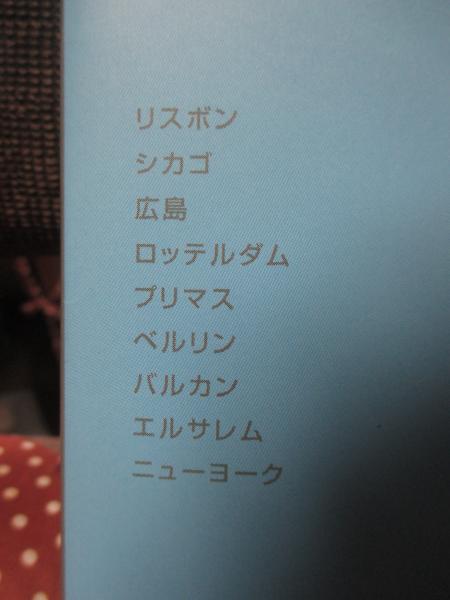 リスボン
シカゴ
広島
ロッテルダム
プリマス
ベルリン
バルカン
エルサレム
ニューヨーク